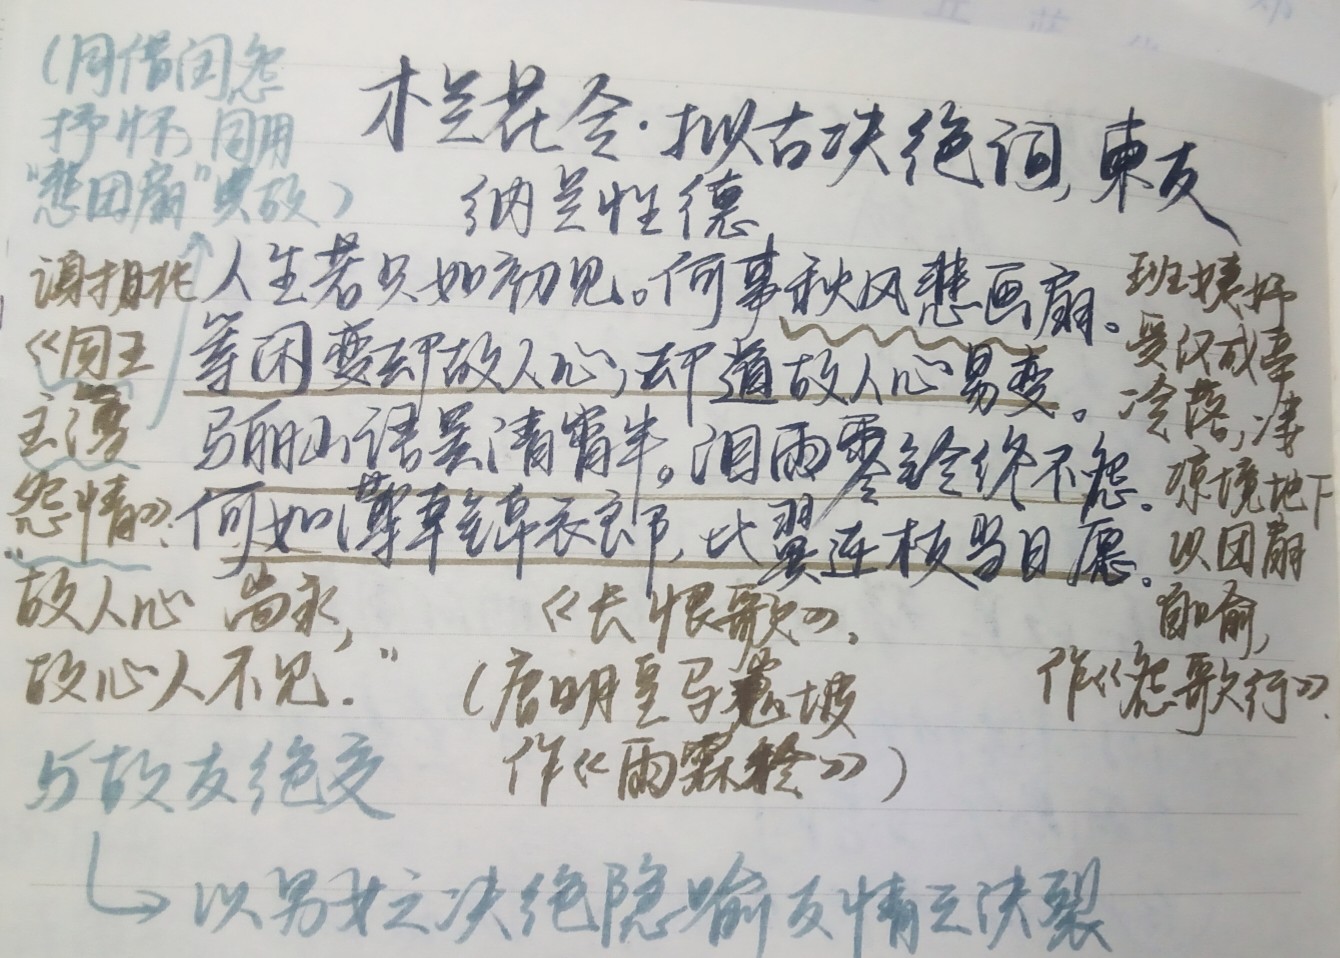 (同借闺怨
抒怀,同用
"悲团扇"典故)
木兰花令·拟古决绝词,柬友
纳兰性德
人生若只如初见。何事秋风悲画扇。
等闲变却故人心,却道故人心易变。
骊山语罢清宵半。泪雨零铃终不怨。
何如薄幸锦衣郎,比翼连枝当日愿。
谢朓
《同王
主簿
怨情》:
"故人心尚永,
故心人不见."
班婕妤
受汉成帝
冷落,凄
凉境地下
以团扇
自喻,
作《怨歌行》.
《长恨歌》.
(唐明皇马嵬坡
作《雨霖铃》)
与故友绝交
→以男女之决绝隐喻友情之决裂